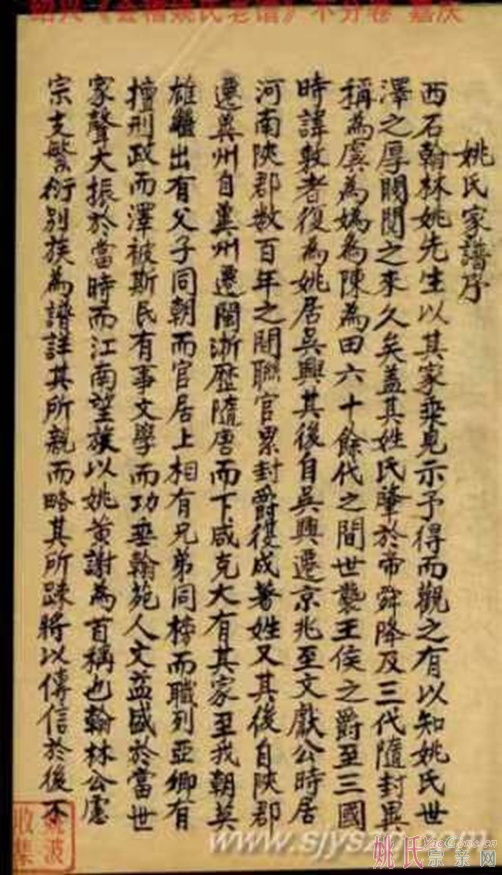 绍兴《会稽姚氏老谱》不分卷 嘉庆
姚氏家譜序
西石翰林姚先生以其家乘見示予得而觀之有以知姚氏世
澤之厚閥閱之來久矣蓋其姓氏肇於帝舜降及三代隨封異
稱為虞為媯為陳為田六十餘代之間世襲王侯之爵至三國
時諱敷者復為姚居吳興其後自吳興遷京兆至文獻公時居
河南陝郡数百年之間聯官累封爵復成著姓又其後自陝郡
遷冀州自冀州遷閩浙歷隨唐而下咸克大有其家至我朝英
雄繼出有父子同朝而官居上相有兄弟同榜而職列亞卿有
擅刑政而澤被斯民有事文學而功垂翰苑人文益盛於當世
家聲大振於當時而江南望族以姚黃謝為首稱也翰林公慮
宗支繁衍別族為譜詳其所親而略其所踈將以傳信於後不
波
收集
www.sjyszq.com
姚氏宗亲网